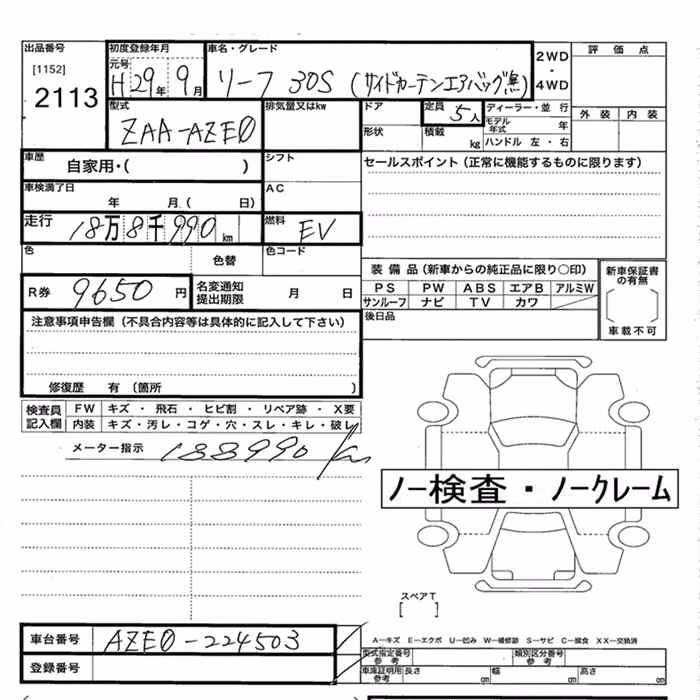 出品番号
[1152]
2113
初度登録年月
元号
H 29年 9月
車名・グレード
リーフ 30S (サイドカーテンエアバッグ無)
2WD
・
4WD
評価点
外装 内装
型式
ZAA-AZE0
排気量又はkw
ドア
形状
定員 5人
積載 kg
ディーラー・並行
モデル年式 年
ハンドル 左・右
車歴
自家用・( )
シフト
セールスポイント(正常に機能するものに限ります)
車検満了日
年 月.( 日)
AC
走行 18万8千990km
燃料 EV
色 色替
色コード
装備品(新車からの純正品に限り○印)
PS PW ABS エアB アルミW
サンルーフ ナビ TV カワ
新車保証書の有無
車載不可
R券 9650円
名変通知
提出期限 月 日
後日品
注意事項申告欄(不具合内容等は具体的に記入して下さい)
修復歴 有(箇所 )
検査員記入欄
FW キズ・飛石・ヒビ割・リペア跡・X要
内装 キズ・汚レ・コゲ・穴・スレ・キレ・破レ
メーター指示 188990km
ノー検査・ノークレーム
スペアT
[ ]
車台番号 AZE0-224503
登録番号
A−キズ E−エクボ U−凹み W−補修跡 S−サビ C−腐食 XX−交換済
型式指定番号
参考
類別区分番号
参考
車庫証明用
参考
長さ cm 幅 cm 高さ cm